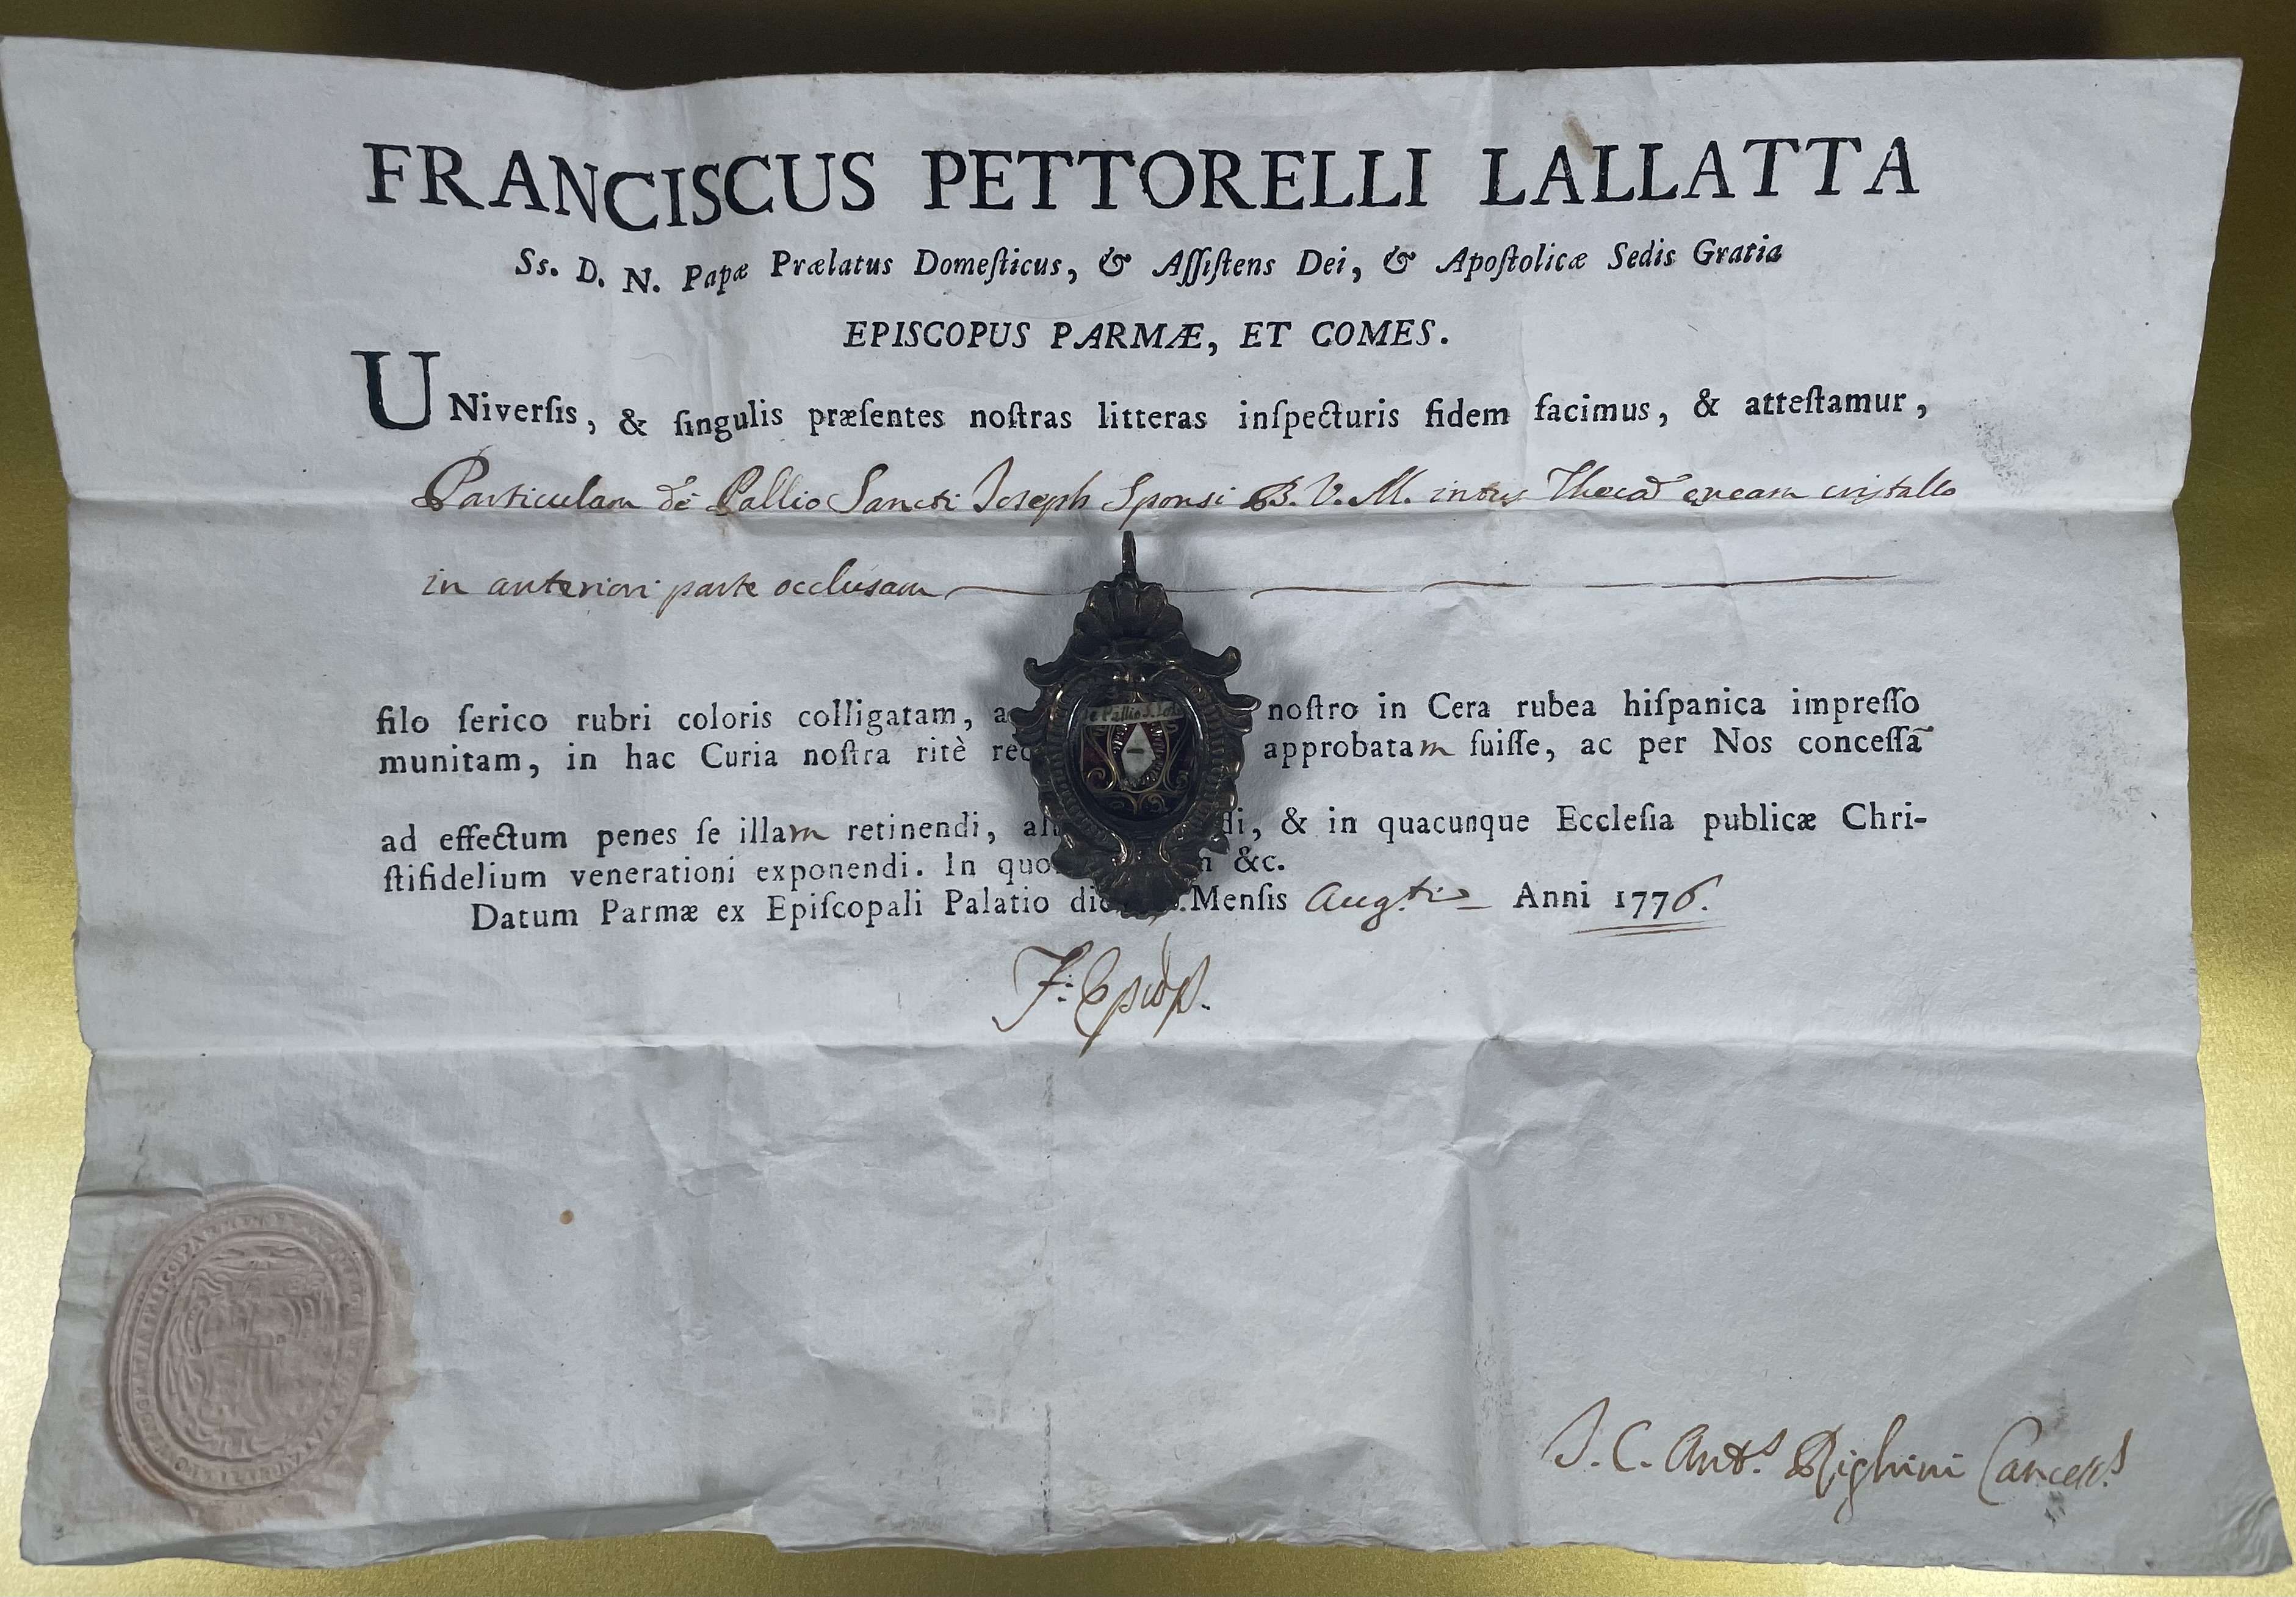 FRANCISCUS PETTORELLI LALLATTA
Ss. D. N. Papæ Prælatus Domeſticus, & Aſſiſtens Dei, & Apoſtolicæ Sedis Gratia
EPISCOPUS PARMÆ, ET COMES.
UNiverſis, & ſingulis præſentes noſtras litteras inſpecturis fidem facimus, & atteſtamur,
Particulam de Pallio Sancti Joseph Sponsi B. V. M. intus Thecam æneam cristallo
in anteriori parte occlusam
filo ſerico rubri coloris colligatam, noſtro in Cera rubea hiſpanica impreſſo
munitam, in hac Curia noſtra ritè approbatam fuiſſe, ac per Nos conceſſã
ad effectum penes ſe illam retinendi, & in quacunque Eccleſia publicæ Chri-
ſtifidelium venerationi exponendi. In &c.
Datum Parmæ ex Epiſcopali Palatio Menſis Aug.ti Anni 1776.
de Pallio S. Jose
F: Epũs.
J. C. Ant.s Righini Cancell.s